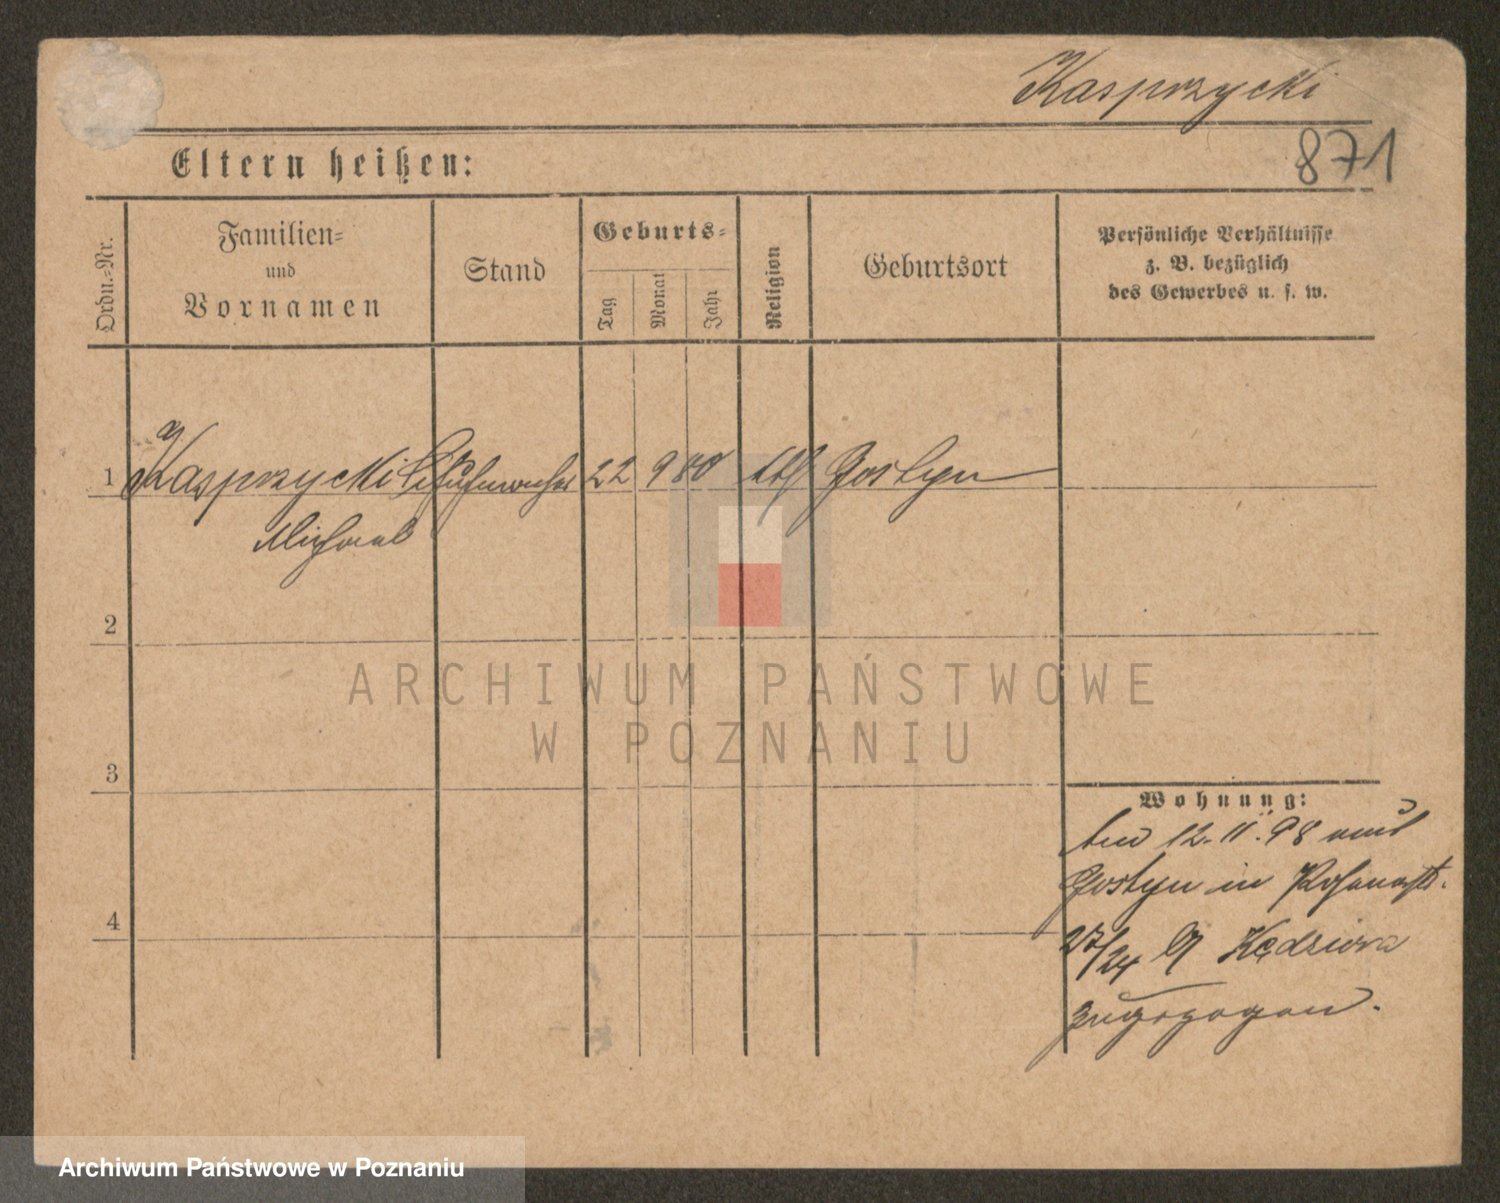 Kasprzycki
871
Eltern heißen:
Ordn.-Nr.
Familien-
und
Vornamen
Stand
Geburts-
Tag
Monat
Jahr
Religion
Geburtsort
Persönliche Verhältnisse
z. B. bezüglich
des Gewerbes u. s. w.
1
Kasprzycki
22
9
80
kth
Gostyn
Michael
2
ARCHIWUM PAŃSTWOWE
W POZNANIU
3
Wohnung:
Am 12.11.98 aus
Gostyn in Posenerstr.
27/24 Kędziora
zugezogen.
4
Archiwum Państwowe w Poznaniu